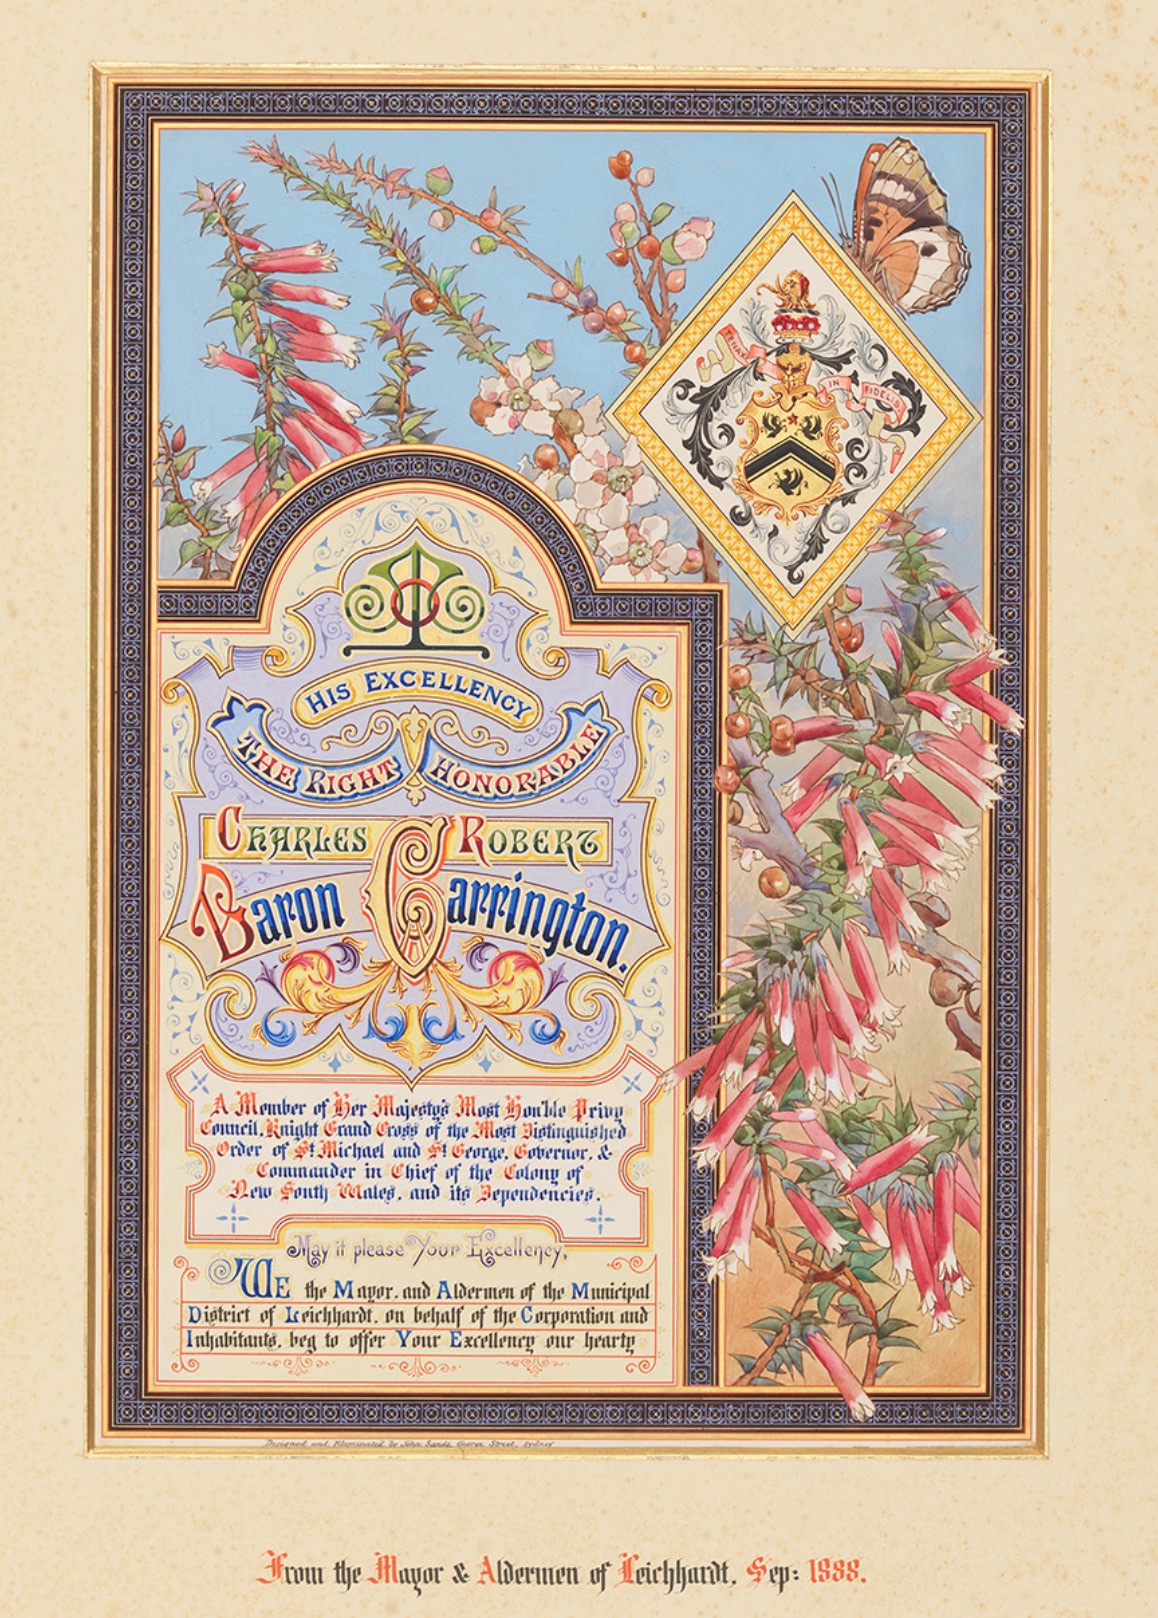 TENAX
IN
FIDELIS
HIS EXCELLENCY
THE RIGHT HONORABLE
CHARLES ROBERT
Baron Carrington.
A Member of Her Majestys Most Hon'ble Privy
Council, Knight Grand Cross of the Most Distinguished
Order of St Michael and St George, Governor, &
Commander in Chief of the Colony of
New South Wales, and its Dependencies.
May it please Your Excellency,
WE the Mayor, and Aldermen of the Municipal
District of Leichhardt, on behalf of the Corporation and
Inhabitants, beg to offer Your Excellency our hearty
Designed and Illuminated by John Sands George Street, Sydney
From the Mayor & Aldermen of Leichhardt, Sep: 1888.